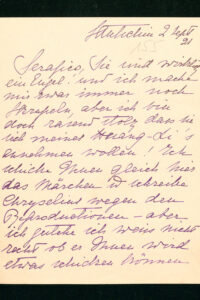 2 Sept
21
155
Serafico, Sie sind wirklich
ein Engel! und ich mach
mir zwar immer noch
Skrupeln, aber ich bin
doch rasend stolz dass sie
sich meines Hoang-Li's
annehmen wollen! Ich
schicke Ihnen gleich hier
das Märchen u schreibe
Chryselius wegen den
Reproductionen – aber
ich weiss nicht
recht ob er Ihnen wird
etwas schicken können